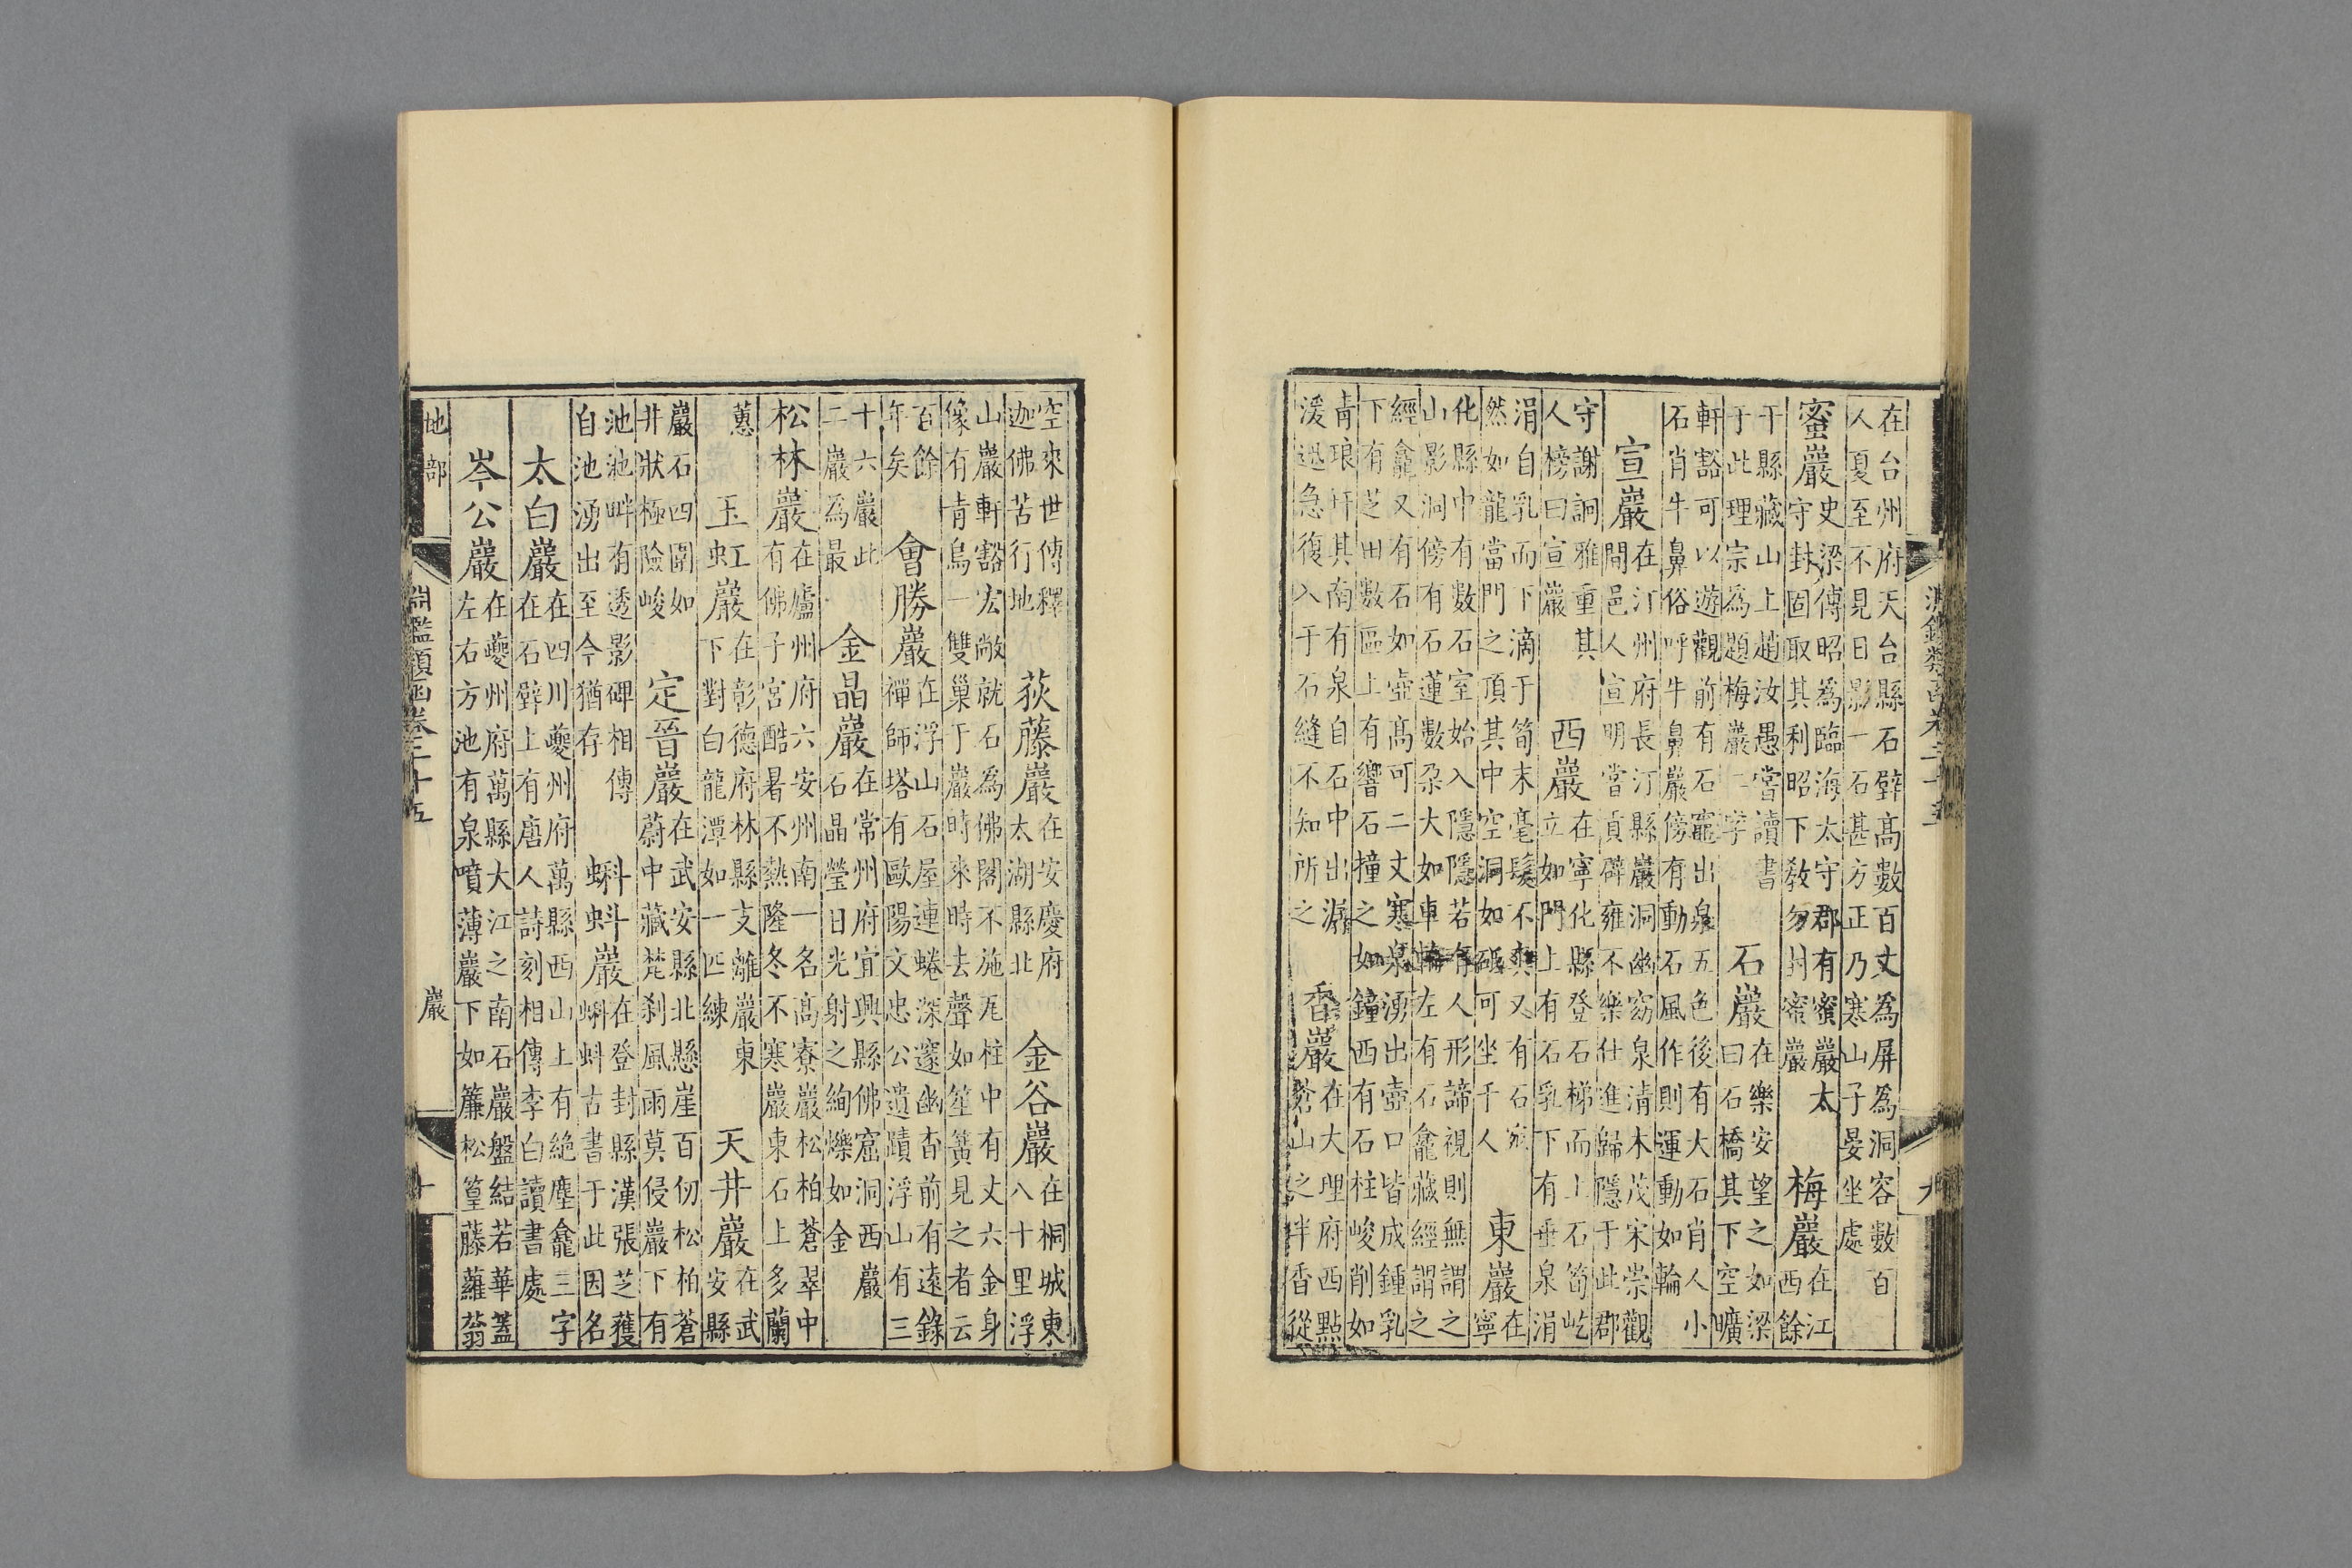 在台州府天台縣石壁高數百丈為屏為洞容數百
人夏至不見日影一石甚方正乃寒山子晏坐處
蜜巖
史梁傅昭為臨海太守郡有蜜巖太
守封固取其利昭下教勿封蜜巖
梅巖
在江
西餘
干縣藏山上趙汝愚嘗讀書
于此理宗為題梅巖二字
石巖
在樂安望之如梁
曰石橋其下空曠
軒豁可以遊觀前有石竈出泉五色後有大石肖人小
石肖牛鼻俗呼牛鼻巖傍有動石風作則運動如輪
宣巖
在汀州府長汀縣巖洞幽窈泉清木茂宋崇觀
間邑人宣明嘗貢辟雍不樂仕進歸隱于此郡
守謝詗雅重其
人榜曰宣巖
西巖
在寧化縣登石梯而上石筍屹
立如門上有石乳下有垂泉涓
涓自乳而下滴于筍末毫髮不爽又有石
然如龍當門之頂其中空洞如可坐千人
東巖
在
寧
化縣中有數石室始入隱隱若有人形諦視則無謂之
山影洞傍有石蓮數朶大如車輪左有石龕藏經謂之
經龕又有石如壺高可二丈寒泉湧出壺口皆成鍾乳
下有芝田數區上有響石撞之如鐘西有石柱峻削如
青琅玕其南有泉自石中出潺
湲迅急復入于石縫不知所之
香巖
在大理府西點
蒼山之半香從
淵鑑類函卷二十五
九
空來世傳釋
迦佛苦行地
荻藤巖
在安慶府
太湖縣北
金谷巖
在桐城東
八十里浮
山巖軒豁宏敞就石為佛閣不施瓦柱中有丈六金身
像有青烏一雙巢于巖時來時去聲如笙簧見之者云
百餘
年矣
會勝巖
在浮山石屋連蜷深邃幽杳前有遠錄
禪師塔有歐陽文忠公遺蹟浮山有三
十六巖此
二巖為最
金晶巖
在常州府宜興縣佛窟洞西巖
石晶瑩日光射之絢爍如金
松林巖
在廬州府六安州南一名高寮巖松柏蒼翠中
有佛子宮酷暑不熱隆冬不寒巖東石上多蘭
蕙
玉虹巖
在彰德府林縣支離巖東
下對白龍潭如一匹練
天井巖
在武
安縣
巖石四圍如
井狀極險峻
定晉巖
在武安縣北懸崖百仞松柏蒼
蔚中藏梵刹風雨莫侵巖下有
池池畔有透影碑相傳
自池湧出至今猶存
蝌蚪巖
在登封縣漢張芝獲
蝌蚪古書于此因名
太白巖
在四川夔州府萬縣西山上有絶塵龕三字
在石壁上有唐人詩刻相傳李白讀書處
岑公巖
在夔州府萬縣大江之南石巖盤結若華蓋
左右方池有泉噴薄巖下如簾松篁藤蘿蓊
地部
淵鑑類函卷二十五
巖
十